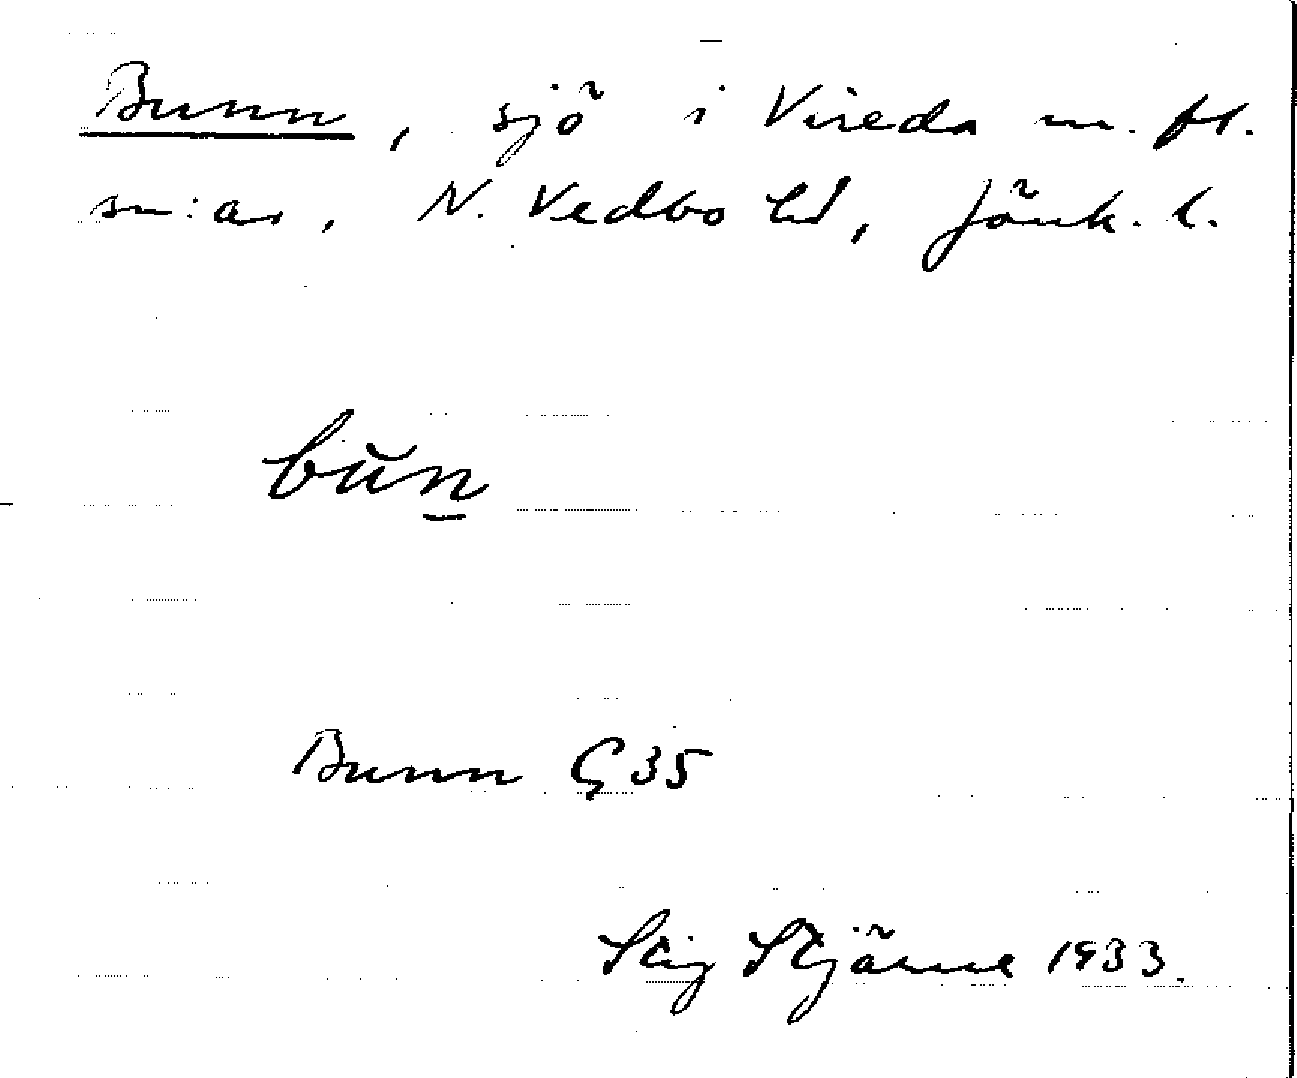 Bunn, sjö i Vireda m. fl.
sn:ar, N. Vedbo hd, Jönk. l.
bŭn̲
Bunn G 35
Stig Stjärne 1933.